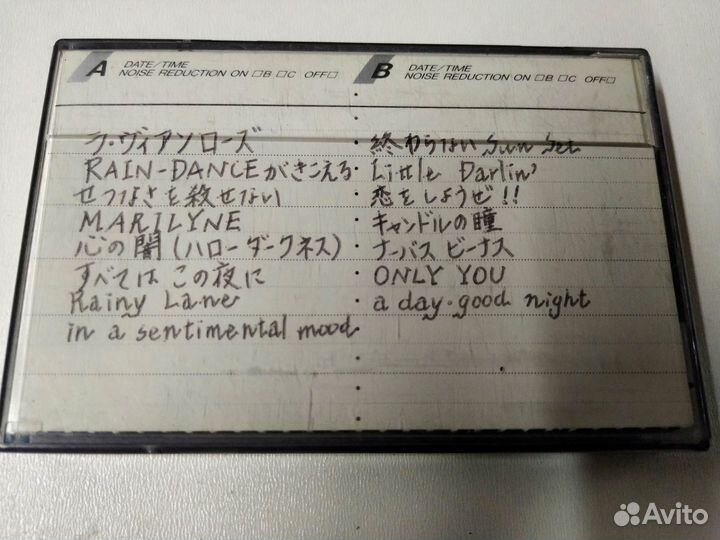 A DATE/TIME
NOISE REDUCTION ON □B □C OFF□
B DATE/TIME
NOISE REDUCTION ON □B □C OFF□
ラ・ヴィアンローズ
RAIN-DANCEがきこえる
せつなさを殺せない
MARILYNE
心の闇(ハローダークネス)
すべては この夜に
Rainy Lane
in a sentimental mood
・終わらない Sun Set
・Little Darlin'
・恋をしようゼ!!
・キャンドルの瞳
・ナーバス ビーナス
・ONLY YOU
・a day・good night
Avito